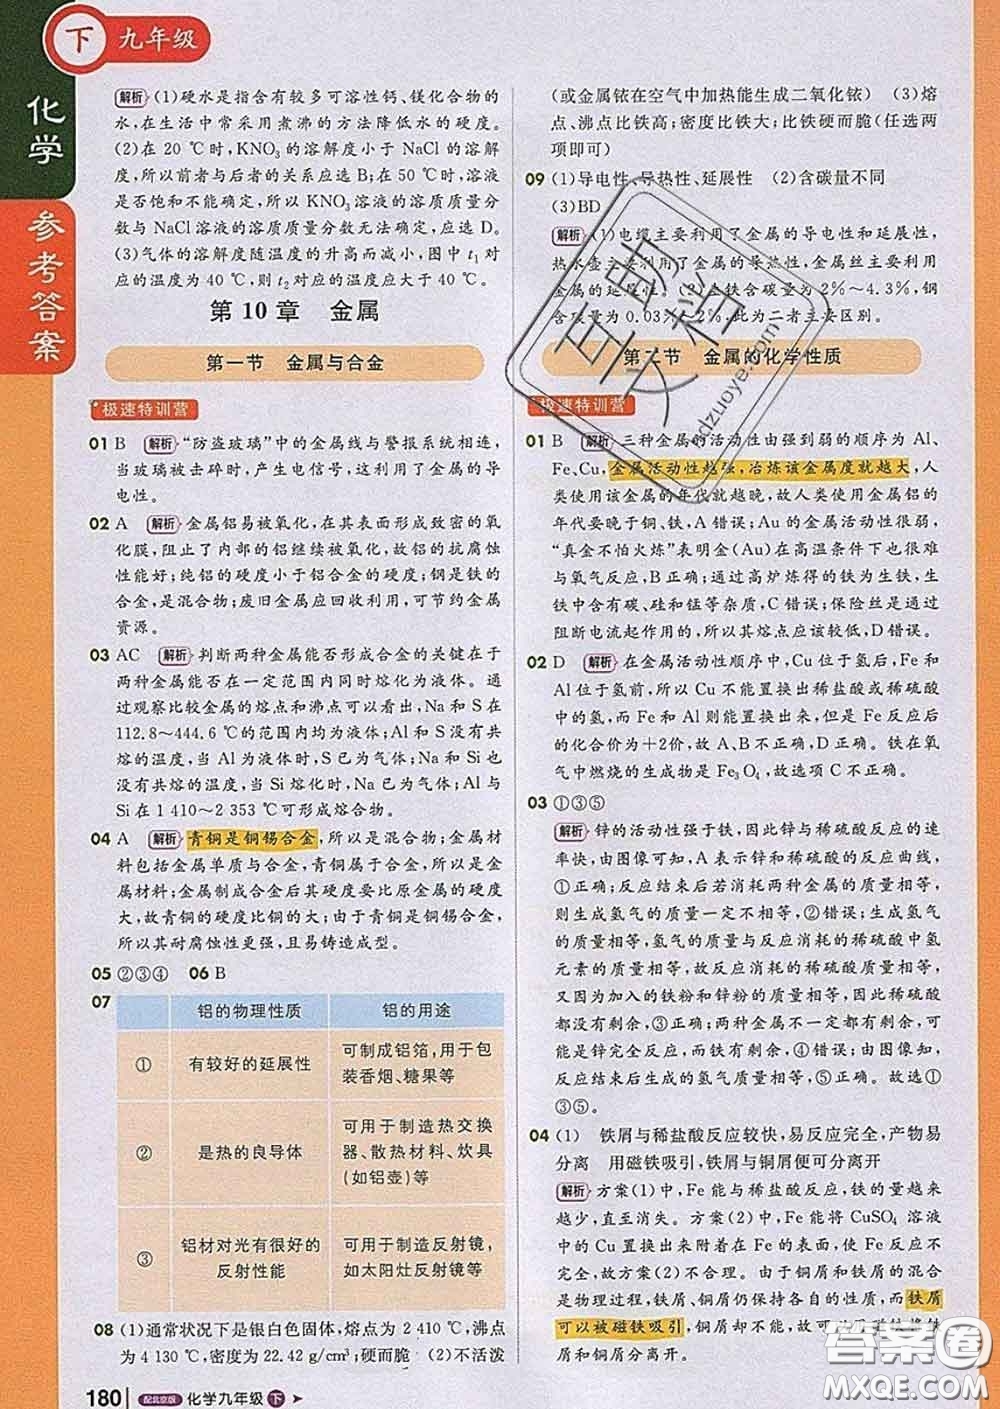 下 九年级
化学
参考答案
解析 (1)硬水是指含有较多可溶性钙、镁化合物的
水,在生活中常采用煮沸的方法降低水的硬度。
(2)在 20 ℃时,KNO3的溶解度小于 NaCl的溶解度,
所以前者与后者的关系应选B;在 50 ℃时,溶液
是否饱和不能确定,所以 KNO3的溶液溶质质量分
数与 NaCl 溶液的溶质质量分数无法确定,应选 D。
(3)气体的溶解度随温度的升高而减小,图中 t1对
应的温度为 40 ℃,则 t2对应的温度应大于 40 ℃。
第 10 章 金属
第一节 金属与合金
极速特训营
01 B 解析 “防盗玻璃”中的金属线与警报系统相连,
当玻璃被击碎时,产生电信号,这利用了金属的导
电性。
02 A 解析 金属铝易被氧化,在其表面形成致密的氧
化膜,阻止了内部的铝继续被氧化,故铝的抗腐蚀
性能好;纯铝的硬度小于铝合金的硬度;钢是铁的
合金,是混合物;废旧金属应回收利用,可节约金属
资源。
03 AC 解析 判断两种金属能否形成合金的关键在于
两种金属能否在一定范围内同时熔化为液体。通
过观察比较金属的熔点和沸点可以看出,Na和S在
112.8~444.6 ℃的范围内均为液体;Al和S没有共
熔的温度,当 Al 熔化时,S 已为气体;Na 和 Si 也
没有共熔的温度,当 Si 熔化时,Na 已为气体;Al 与
Si 在 1 410~2 353 ℃可形成熔合物。
04 A 解析 青铜是铜锡合金,所以是混合物;金属材
料包括金属单质与合金,青铜属于合金,所以是金
属材料;金属制成合金后其硬度要比原金属的硬度
大,故青铜的硬度比铜的大;由于青铜是铜锡合金,
所以其耐腐蚀性更强,且易铸造成型。
05 ②③④ 06 B
07
铝的物理性质 铝的用途
① 有较好的延展性 可制成铝箔,用于包
装香烟、糖果等
② 是热的良导体 可用于制造热交换
器、散热材料、炊具
(如铝壶)等
③ 铝材对光有很好的
反射性能 可用于制造反射镜,
如太阳灶反射镜等
08 (1)通常状况下是银白色固体,熔点为 2 410 ℃,沸点
为 4 130 ℃,密度为 22.42 g/cm3;硬而脆 (2)不活泼
(或金属铱在空气中加热能生成二氧化铱) (3)熔
点、沸点比铁高;密度比铁大;比铁硬而脆(任选两
项即可)
09 (1)导电性、导热性、延展性 (2)含碳量不同
(3)BD
解析 (1)电缆主要利用了金属的导电性和延展性,
热水壶主要利用了金属的导热性,金属丝主要利用
金属的延展性。(2)生铁含碳量为 2%~4.3%,钢
含碳量为 0.03%~2%,此为二者主要区别。
第二节 金属的化学性质
极速特训营
01 B 解析 三种金属的活动性由强到弱的顺序为 Al、
Fe、Cu,金属活动性越强,冶炼该金属难度就越大,人
类使用该金属的年代就越晚,故人类使用金属铝的
年代要晚于铜、铁,A 错误;Au 的金属活动性很弱,
“真金不怕火炼”表明金(Au)在高温条件下也很难
与氧气反应,B正确;通过高炉炼得的铁为生铁,生
铁中含有碳、硅和锰等杂质,C 错误;保险丝是通过
阻断电流起作用的,所以其熔点应该较低,D错误。
02 D 解析 在金属活动性顺序中,Cu 位于氢后,Fe 和
Al位于氢前,所以 Cu 不能置换出稀盐酸或稀硫酸
中的氢,而 Fe 和 Al则能置换出来,但是 Fe反应后
的化合价为+2价,故A、B不正确,D正确。铁在氧
气中燃烧的生成物是 Fe3O4,故选项 C不正确。
03 ①③⑤
解析 锌的活动性强于铁,因此锌与稀硫酸反应的速
率快,由图像可知,A 表示锌和稀硫酸的反应曲线,
①正确;反应结束后若消耗两种金属的质量相等,
则生成氢气的质量一定不相等,②错误;生成氢气
的质量相等,氢气的质量与反应消耗的稀硫酸中氢
元素的质量相等,故反应消耗的稀硫酸质量相等,
又因为加入的铁粉和锌粉的质量相等,因此稀硫酸
都没有剩余,③正确;两种金属不一定都有剩余,可
能是锌完全反应,而铁有剩余,④错误;由图像知,
反应结束后生成的氢气质量相等,⑤正确。故选①
③⑤。
04 (1) 铁屑与稀盐酸反应较快,易反应完全,产物易
分离 用磁铁吸引,铁屑与铜屑便可分离开
解析 方案(1)中,Fe 能与稀盐酸反应,铁的量越来
越少,直至消失。方案(2)中,Fe能将 CuSO4 溶液
中的 Cu 置换出来附着在 Fe 的表面,使 Fe 反应不
完全,故方案(2)不合理。由于铜屑和铁屑的混合
是物理过程,铁屑、铜屑仍保持各自的性质,而铁屑
可以被磁铁吸引,铜屑却不能,故可以用磁铁将铁
屑和铜屑分离开。
180 配北京版 化学九年级 下
答案圈
MXQE.COM